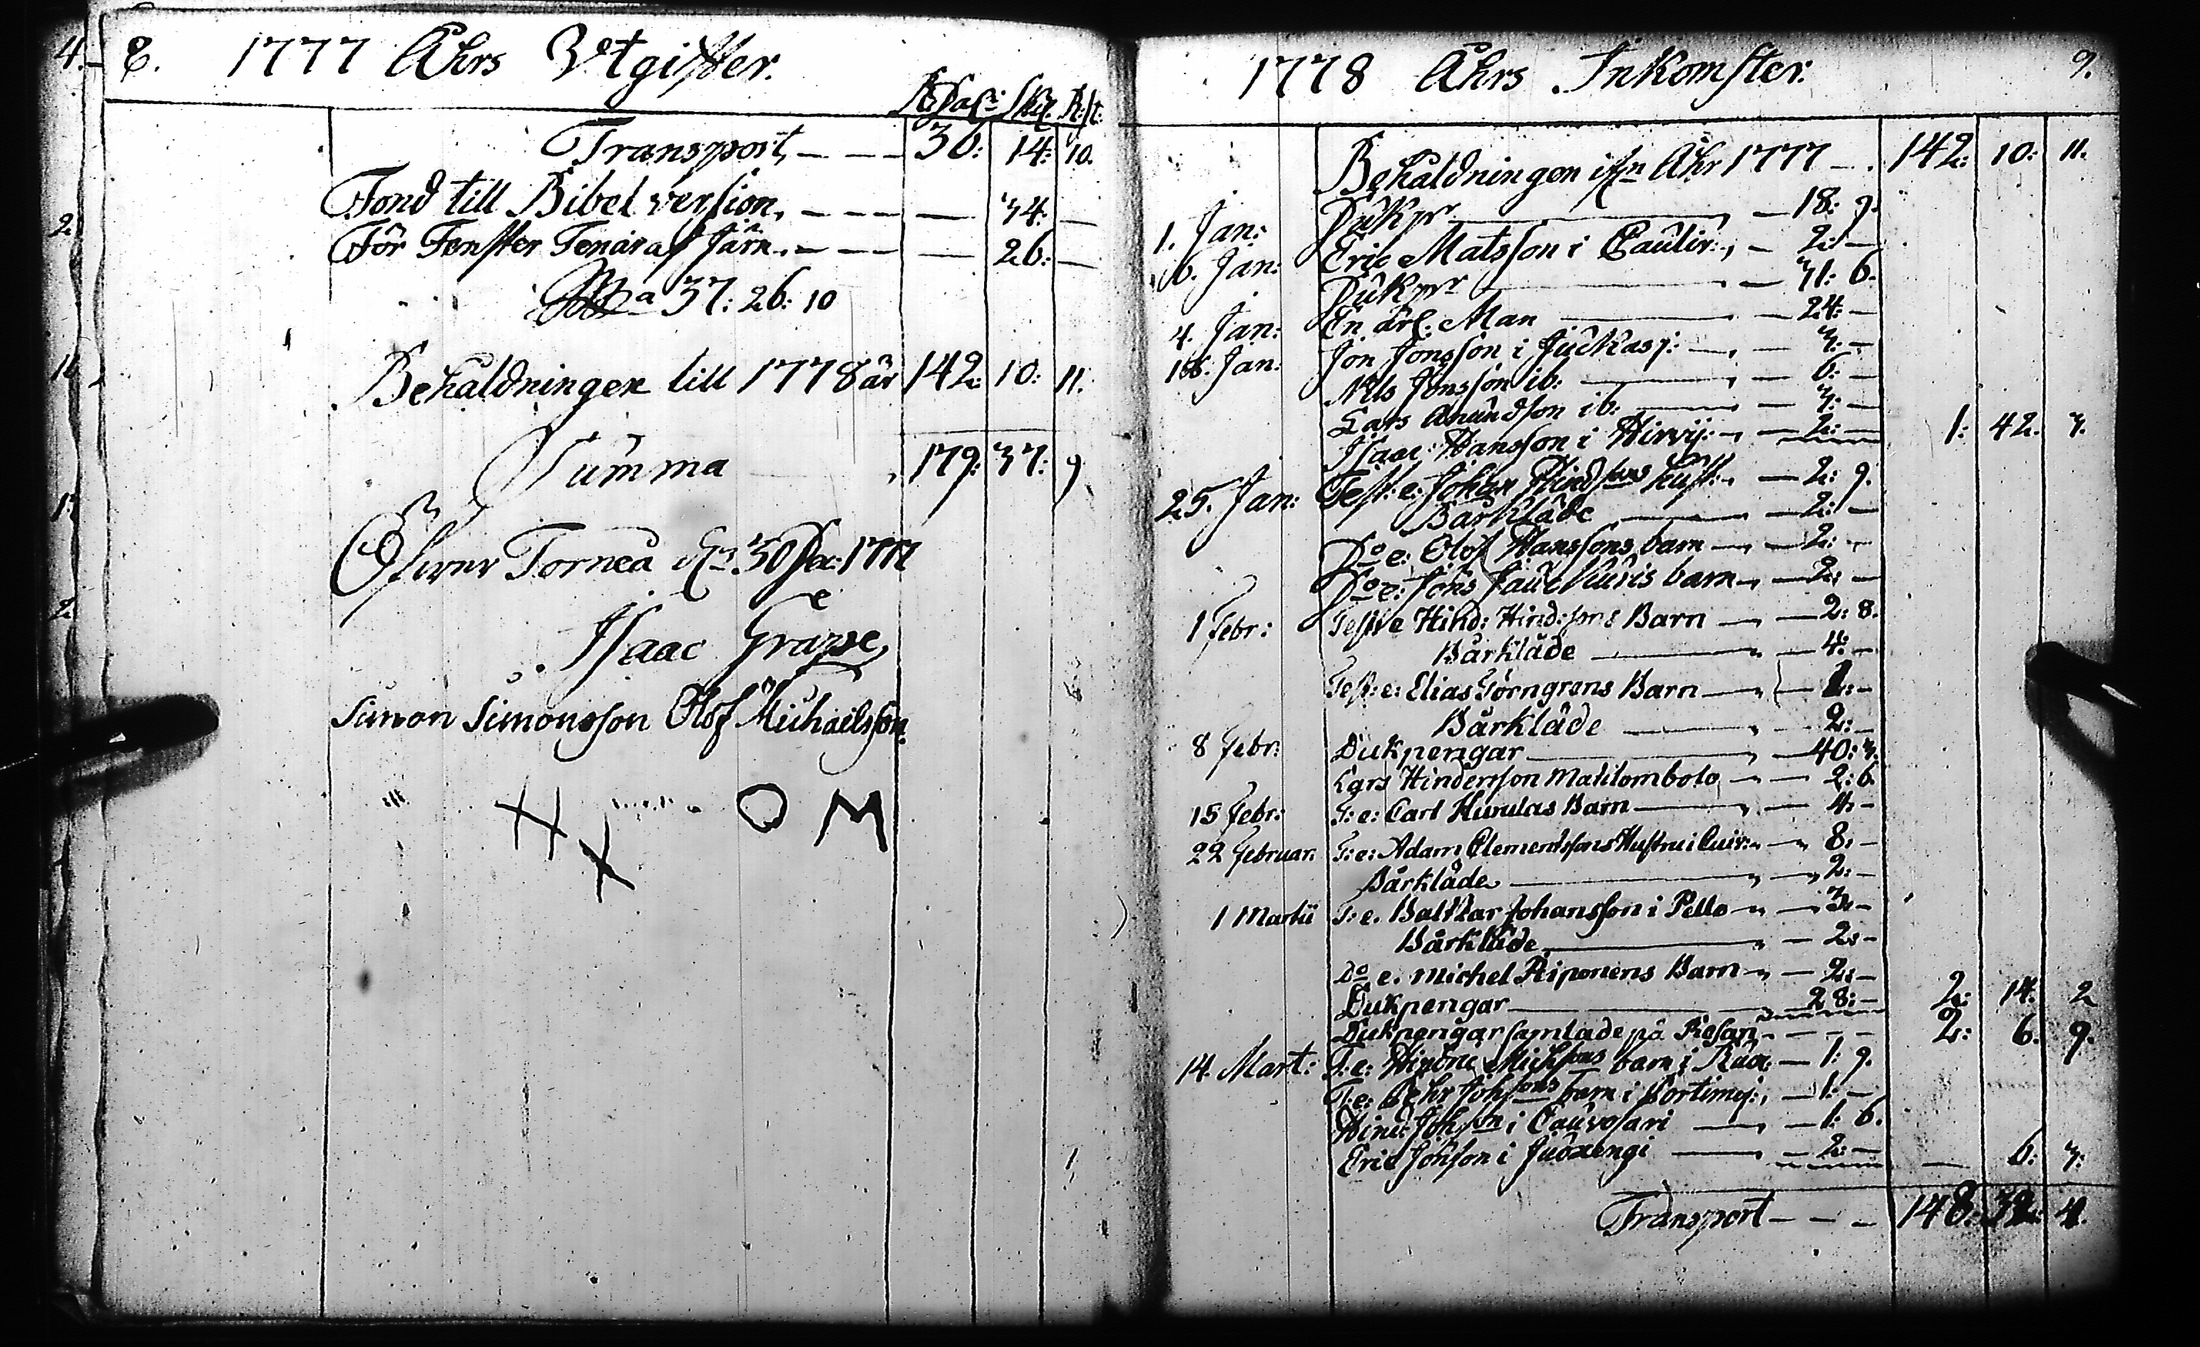 8. 1777 Åhrs Utgifter.
RDal: Skil. R:st:
Transport, — — — 36: 14: 10.
Fond till Bibel version, — — — — 34: —
För Fenster Tenar af Järn. — — — — 26: —
S:a 37: 26: 10
Behåldningen till 1778 år 142: 10: 11.
Summa 179: 37: 9
Öfwer Torneå d. 30 Dec: 1777
Isaac Grape
Simon Simonsson Olof Michaelsson.
O M
1778 Åhrs Inkomster. 9.
Behåldningen ifrån Åhr 1777 — . 142: 10: 11.
1. Jan: Dukpr — 18: 9.
6. Jan: Eric Matsson i Caulir:, — 2: —
Dukpr — 31: 6.
4. Jan: En ärl. Man — 24: —
Jan: Jon Jonsson i Juckasj: — 3: —
Nils Jonsson ib: — 6: —
Lars Anundson ib: — 3: —
Isaac Hansson i Hirvij: — 2: — 1: 42. 3.
25. Jan: Test: e: Johan Hindsons hust: — 2: 9.
Bårkläde — 2: —
Do e: Olof Hanssons barn — 2: —
Do e: Jöns barn — 2: —
1 Febr: Test: e Hind: Hind:sons Barn — 2: 8.
Bårkläde — 4: —
Test: e: Elias Törngrens Barn —
Bårkläde — 2: —
8 Febr: Dukpengar — 40: 3.
Lars Hindersson Matilombolo — 2: 6.
15 Febr: T: e: Carl Hurulas Barn — 4: —
22 Februar: T: e: Adam Clementssons Hustru i Cuir: — 8: —
Bårkläde — 2: —
1 Martii T: e. Balthar Johansson i Pello — 3: —
Bårkläde — 2: —
Do e. Michel Riponens Barn — 2: —
Dukpengar — 28: — 2: 14. 2
Dukpengar samlade på Resan — — — 2: 6. 9.
14. Mart: T: e: Michsons barn i — 1: 9.
T: e: Pehr Johsons barn i Portimoj:, — 1: —
Hind: Johson i Cauvosari — 1: 6.
Eric Johson i Juoxengi — 2: — — 6: 3:
Transport — — — 148: 32: 4.